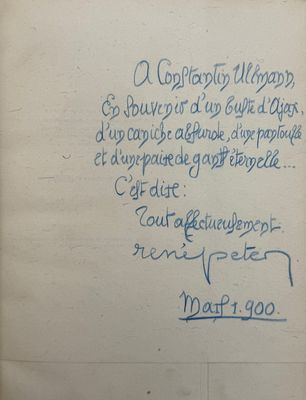 A Constantin Ullmann,
En souvenir d'un buste d'Ajax,
d'un caniche absurde, d'une pantoufle
et d'une paire de gants éternelle...
C'est dire:
Tout affectueusement.
rené peter
Mars 1.900.